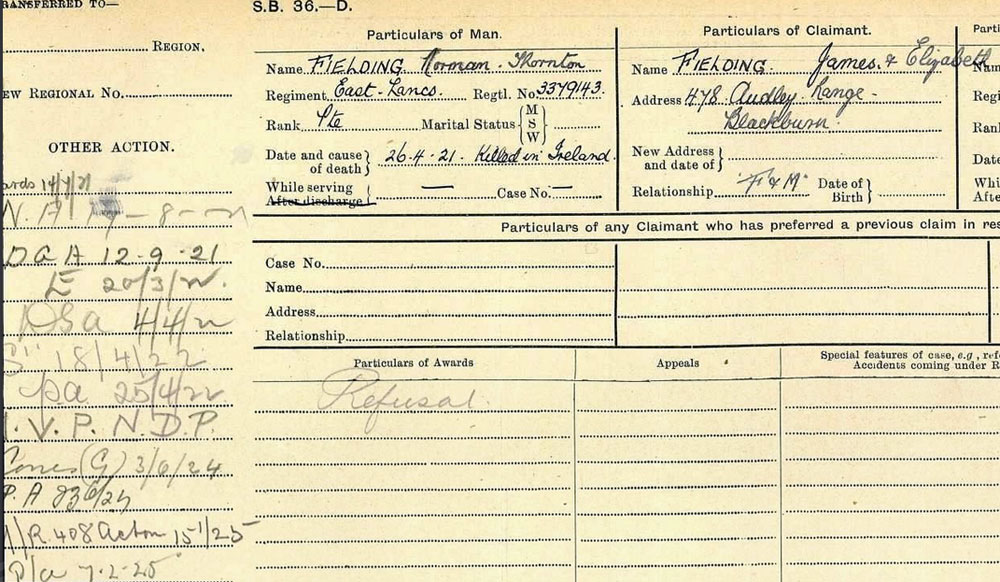 TRANSFERRED TO—
REGION.
NEW REGIONAL No.
OTHER ACTION.
14/7/21
N. A
D G A 12-9-21
E 20/3/22.
4/4/22
18/4/22
25/4/22
V. P. N. D. P.
(G) 3/6/24
P. A
R. 408 Acton 15/1/25
P/a 7-2-25
S.B. 36.—D.
Particulars of Man.
Name FIELDING Norman. Thornton
Regiment East-Lancs. Regtl. No. 3379143.
Rank Pte Marital Status { M S W }
Date and cause of death } 26.4.21. Killed in Ireland.
While serving — Case No. —
After discharge
Particulars of Claimant.
Name FIELDING. James. & Elizabeth
Address 478 Audley. Range-
Blackburn.
New Address and date of }
Relationship F & M Date of Birth }
Parti
Nam
Regi
Ran
Date
Whi
Afte
Particulars of any Claimant who has preferred a previous claim in res
Case No.
Name
Address
Relationship
Particulars of Awards
Appeals
Special features of case, e.g., ref
Accidents coming under R
Refusal.